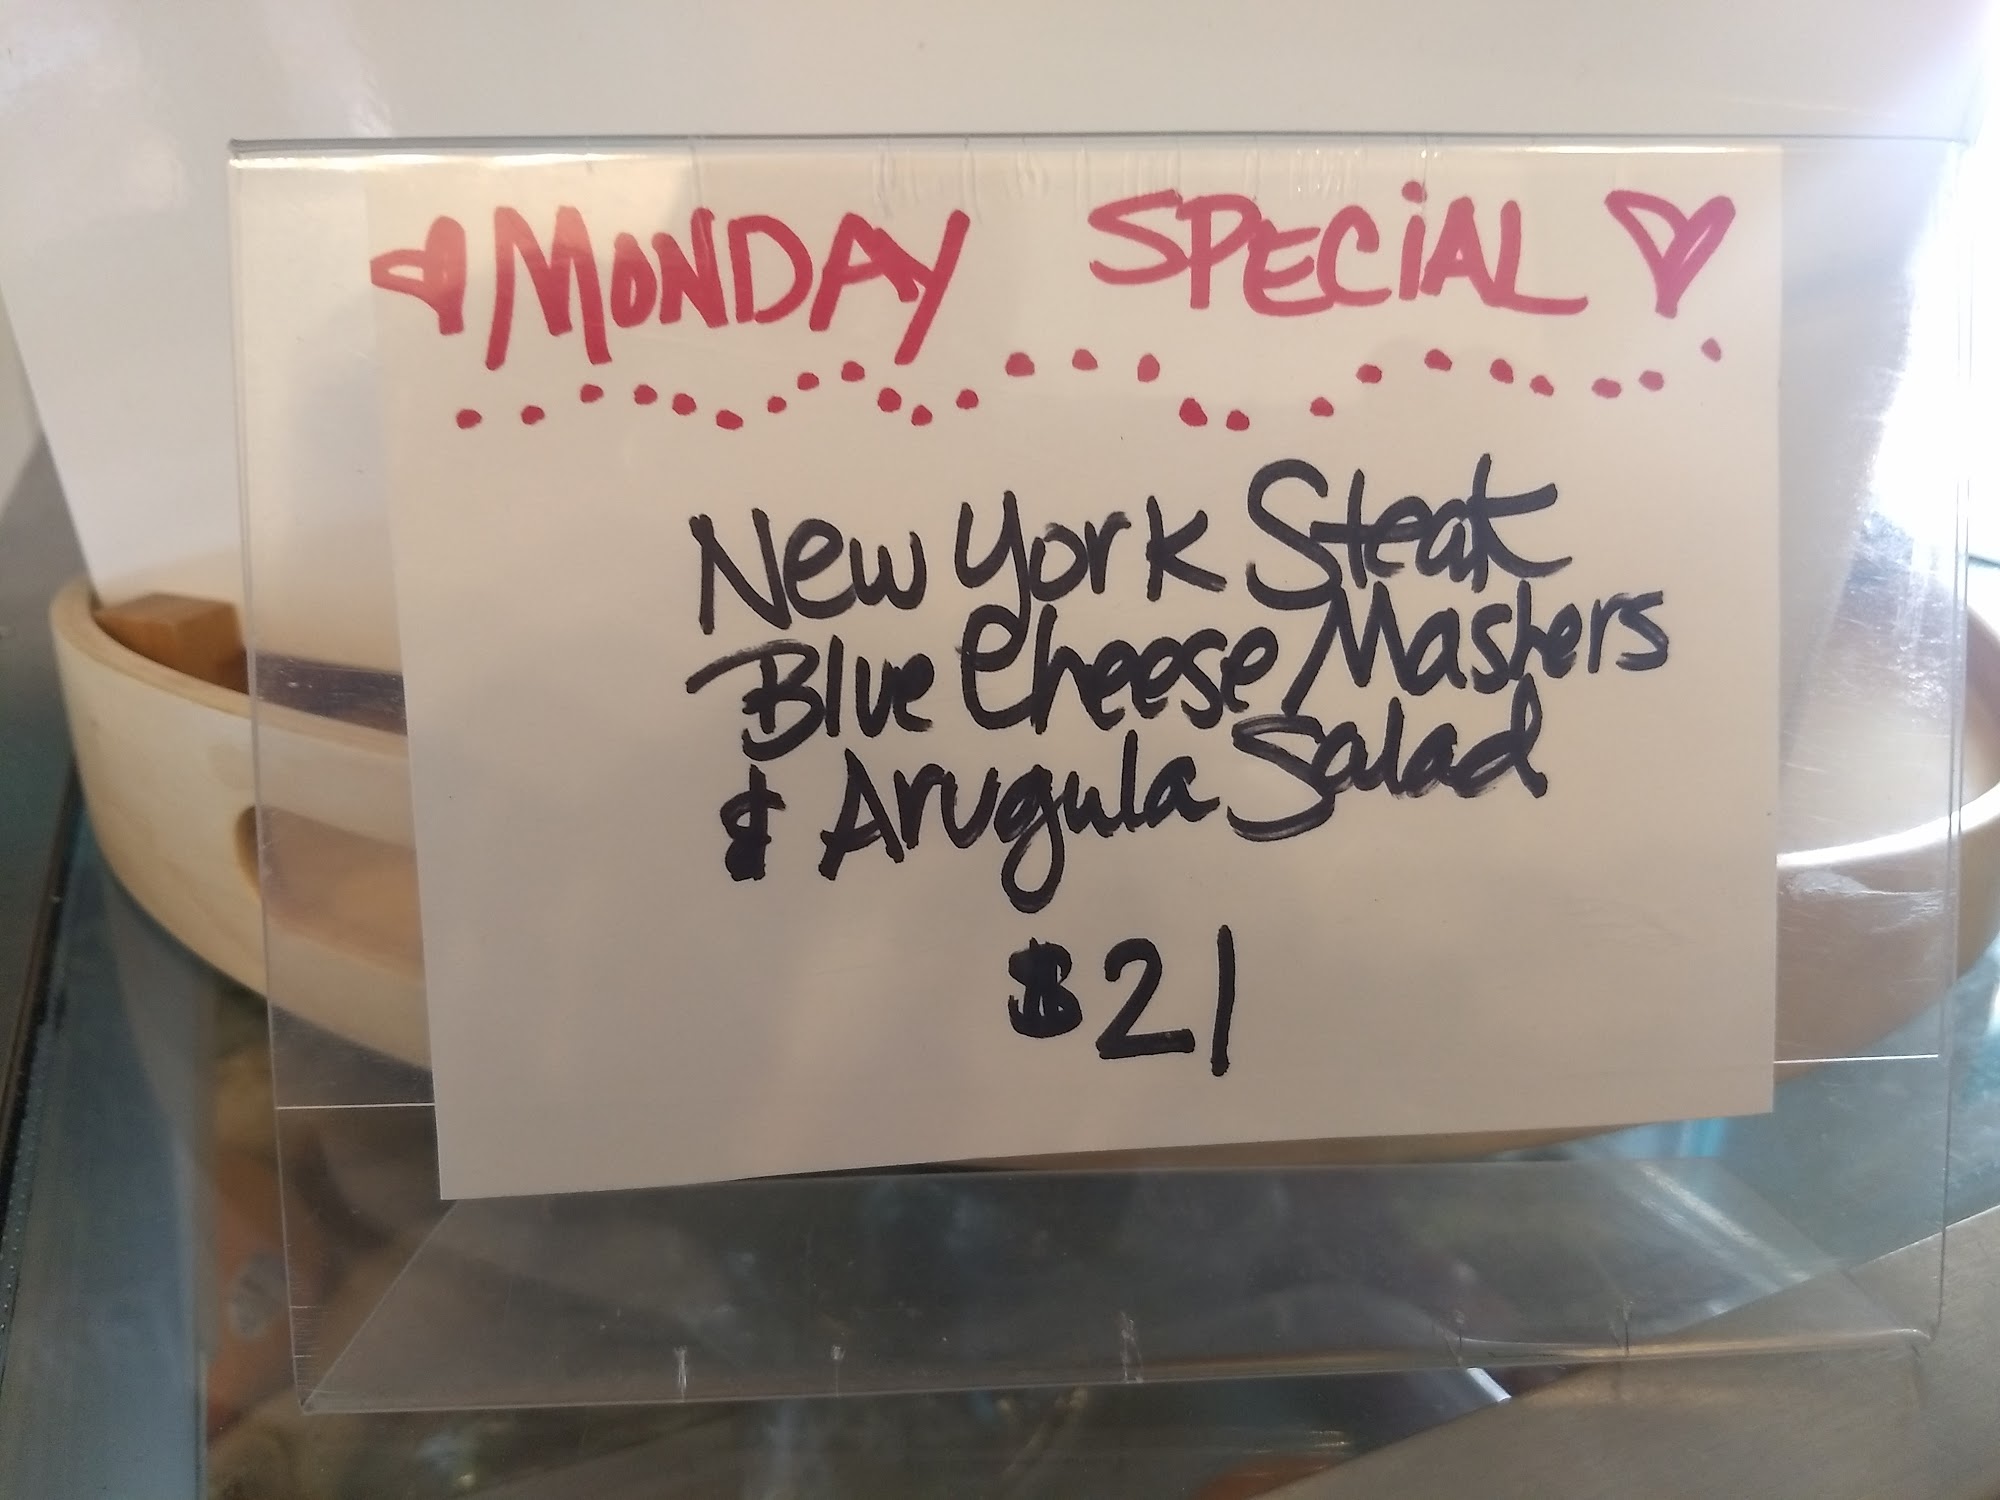 MONDAY SPECiAL
New York Steak
Blue Cheese Mashers
& Arugula Salad
$21